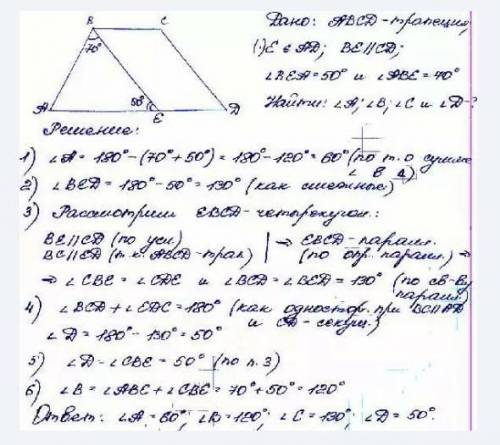 B C
70°
50°
A E D
Дано: ABCD - трапеция,
(·) E ∈ AD; BE||CD;
∠BEA = 50° и ∠ABE = 70°
Найти: ∠A; ∠B; ∠C и ∠D - ?
Решение:
1) ∠A = 180° - (70° + 50°) = 180° - 120° = 60° (по т. о сумме
∠ в Δ)
2) ∠BED = 180° - 50° = 130° (как смежные)
3) Рассмотрим EBCD - четырехугол.:
BE||CD (по усл) | ⇒ EBCD - паралл.
BC||ED (т.к. ABCD - трап) | (по опр. паралл.) ⇒
⇒ ∠CBE = ∠CDE и ∠BCD = ∠BED = 130° (по св-ву
паралл)
4) ∠BCD + ∠EDC = 180° (как одностор. при BC||AD
и CD - секущ.)
∠D = 180° - 130° = 50°
5) ∠D = ∠CBE = 50° (по п. 3)
6) ∠B = ∠ABE + ∠CBE = 70° + 50° = 120°
Ответ: ∠A = 60°; ∠B = 120°; ∠C = 130°; ∠D = 50°.